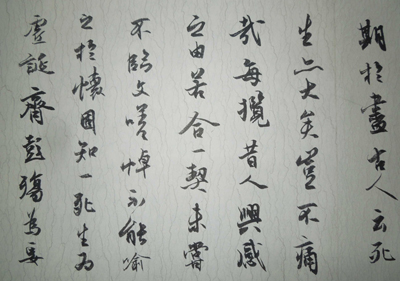 期於盡古人云死
生亦大矣豈不痛
哉每攬昔人興感
之由若合一契未嘗
不臨文嗟悼不能喻
之於懷固知一死生為
虛誕齊彭殤為妄